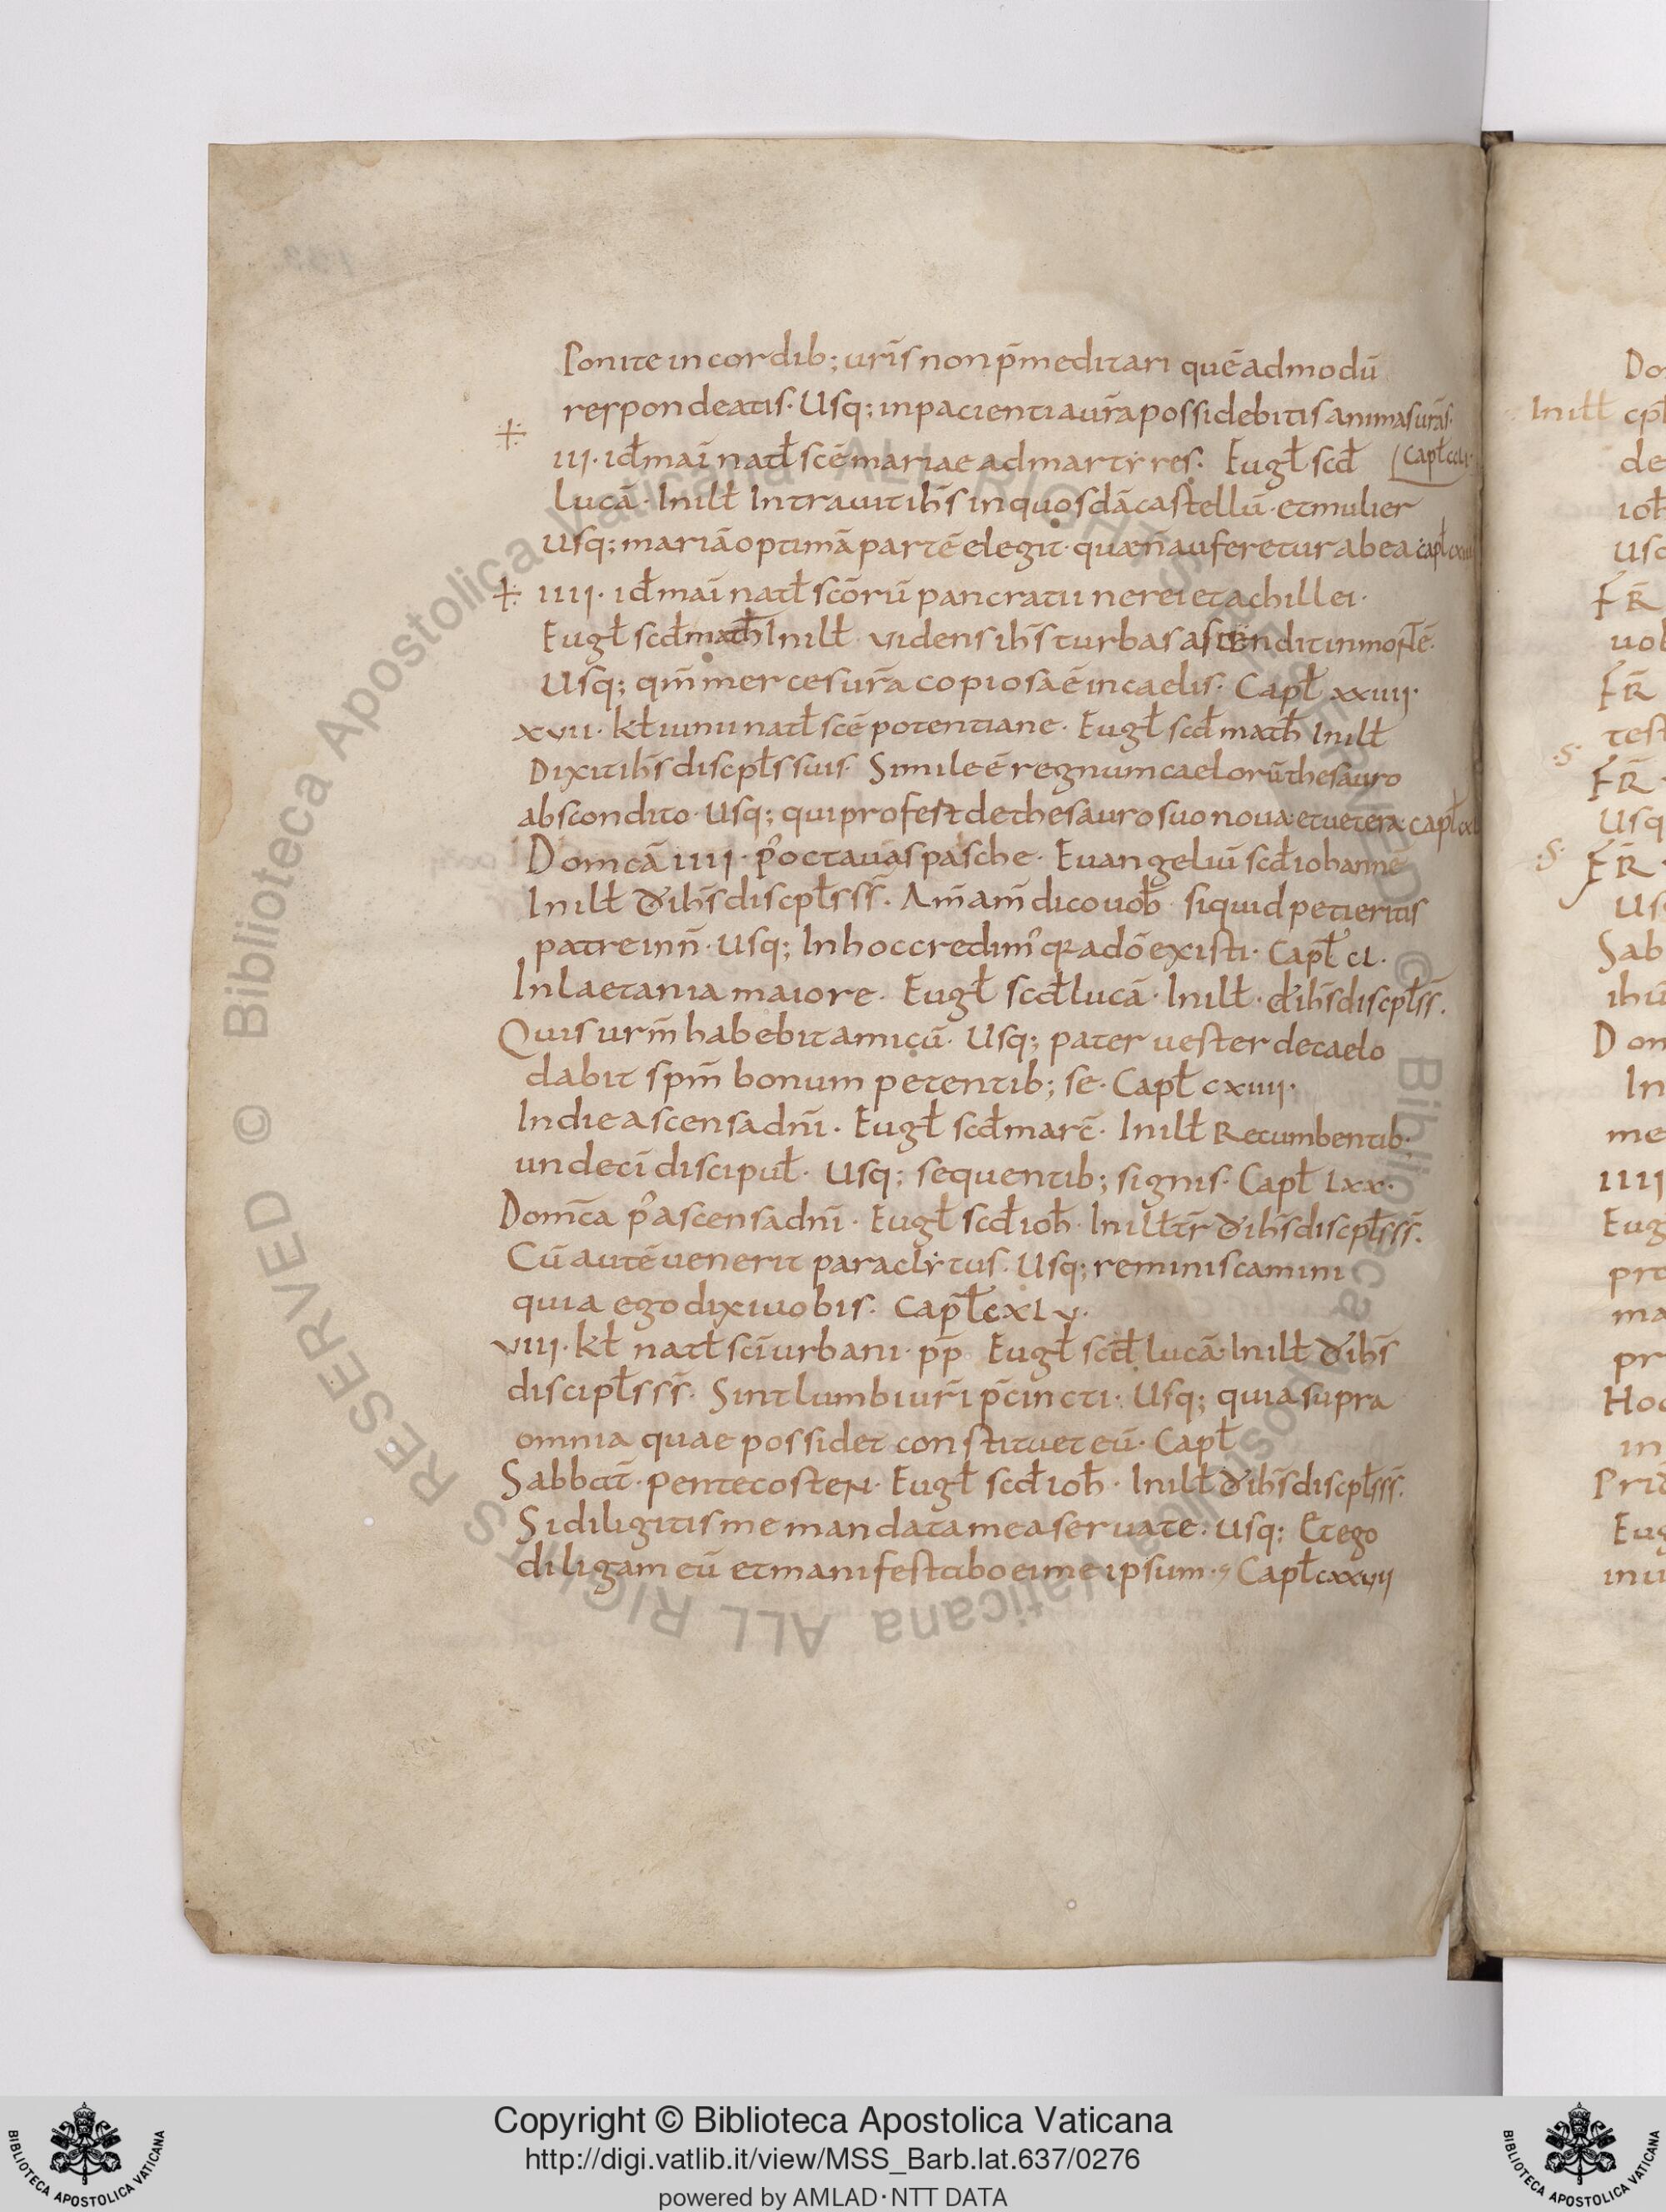 Ponite in cordib; ur̄is non p̄meditari quēadmodū
respondeatis· Usq; in pacientia ur̄a possidebitis animas ur̄as·
III· id̄ mai nat̄ scē mariae ad martyres· Eugł scd̄ Capł ccLI·
Lucā· In ilł Intrauit ih̄s in quosdā castellū· et mulier
Usq; mariā optimā partē elegit· quæ n̄ auferetur ab ea capł
IIII· id̄ mai nat̄ scōrū pancratii nerei et achillei·
Eugł scd̄ math̄ In ilł videns ih̄s turbas ascendit in montē·
Usq; qm̄ merces ur̄a copiosa ē in caelis· Capł xxIIII·
xvII· kł iunii nat̄ scē potentiane· Eugł scd̄ math̄ In ilł
Dixit ih̄s discpłs suis· Simile ē regnum caelorū thesauro
abscondito· Usq; qui profert de thesauro suo noua et uetera capł
Domcā IIII· p' octauas pasche· Euangeliū scd̄ iohanne
In ilł d' ih̄s discpłs s̄s̄· Am̄ am̄ dico uob̄ siquid petieritis
patre in n̄· Usq; In hoc credim' qa a dō existi· Capł cL·
In laetania maiore· Eugł scd̄ lucā· In ilł· d' ih̄s discpłs s̄·
Quis urm̄ habebit amicū· Usq; pater uester de caelo
dabit spm̄ bonum petentib; se· Capł cxIIII·
In die ascensa dn̄i· Eugł scd̄ marc̄· In ilł Recumbentib;
undeci discipuł· Usq; sequentib; signis· Capł Lxx·
Domc̄a p' ascensa dn̄i· Eugł scd̄ ioh̄· In ilł tr̄ d' ih̄s discpłs s̄s̄·
Cū autē uenerit paraclytus· Usq; reminiscamini
quia ego dixi uobis· Capł cxLv·
vIII· kł nat̄ sci urbani· pp̄ Eugł scd̄ lucā· In ilł d' ih̄s
discipłs s̄s̄· Sint lumbi ur̄i p̄cincti· Usq; quia supra
omnia quae possidet constituet eū· Capł
Sabbat̄· pentecosten· Eugł scd̄ ioh̄· In ilł d' ih̄s discpłs s̄s̄·
Si diligitis me mandata mea seruate· usq; Et ego
diligam eū et manifestabo ei me ipsum· Capł cxxvII
In ilł
Copyright © Biblioteca Apostolica Vaticana
http://digi.vatlib.it/view/MSS_Barb.lat.637/0276
powered by AMLAD·NTT DATA
BIBLIOTECA APOSTOLICA VATICANA
BIBLIOTECA APOSTOLICA VATICANA
© Biblioteca Apostolica Vaticana ALL RIGHTS RESERVED © Biblioteca Apostolica Vaticana ALL RIGHTS RESERVED